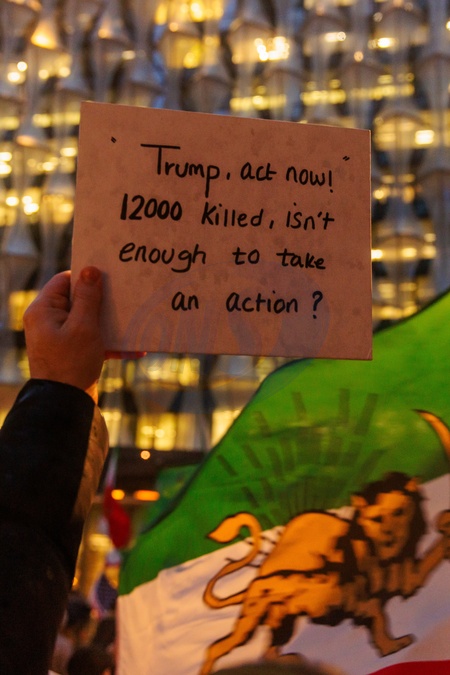 " Trump, act now! "
12000 killed, isn't
enough to take
an action ?